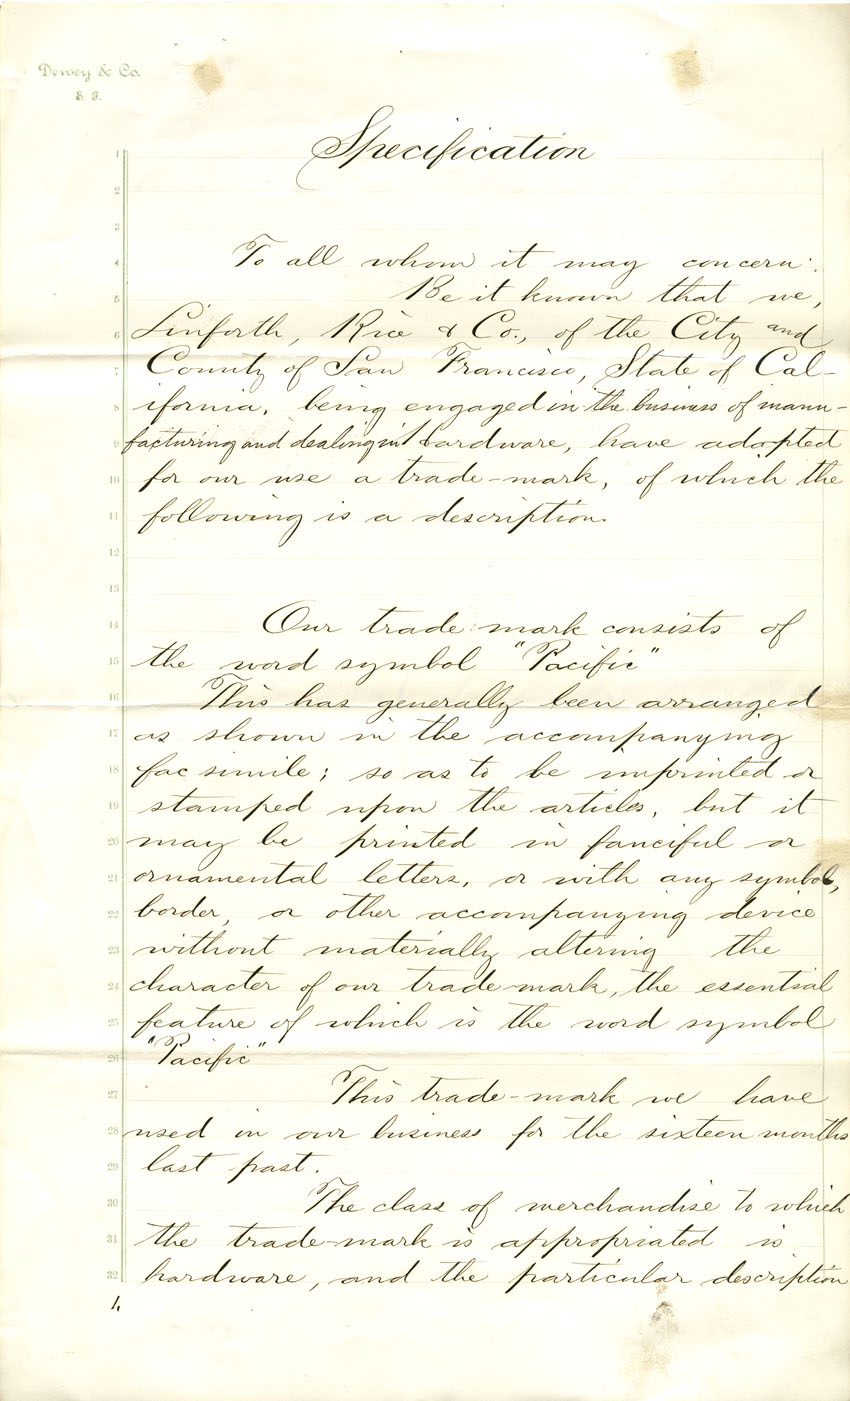 Dewey & Co.
S. F.
Specification
1
2
3
4 To all whom it may concern:
5 Be it known that we,
6 Linforth, Rice & Co., of the City and
7 County of San Francisco, State of Cal-
8 ifornia, being engaged in the business of manu-
9 facturing and dealing in hardware, have adopted
10 for our use a trade-mark, of which the
11 following is a description.
12
13
14 Our trade-mark consists of
15 the word symbol "Pacific"
16 This has generally been arranged
17 as shown in the accompanying
18 fac simile; so as to be imprinted or
19 stamped upon the articles, but it
20 may be printed in fanciful or
21 ornamental letters, or with any symbol,
22 border, or other accompanying device
23 without materially altering the
24 character of our trade-mark, the essential
25 feature of which is the word symbol
26 "Pacific"
27 This trade-mark we have
28 used in our business for the sixteen months
29 last past.
30 The class of merchandise to which
31 the trade-mark is appropriated is
32 hardware, and the particular description
1.